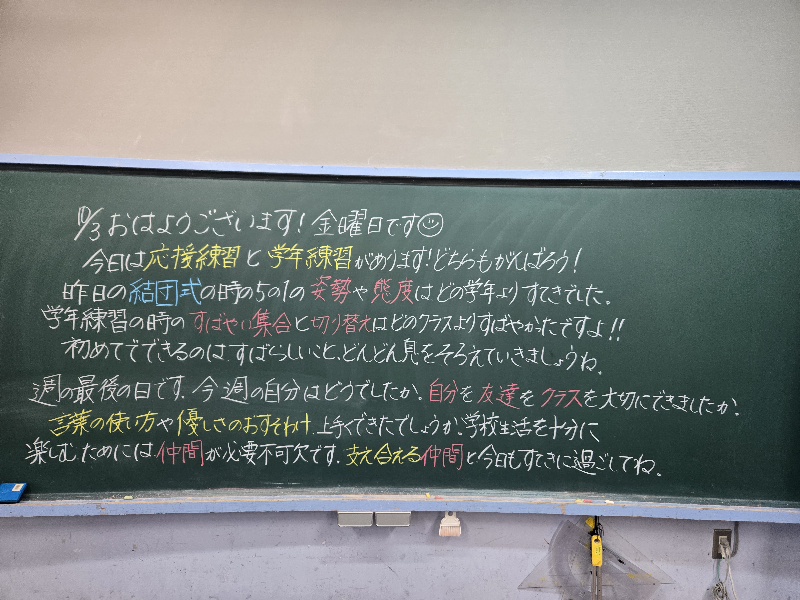 10/3 おはようございます!金曜日です☺
今日は応援練習と学年練習があります!どちらもがんばろう!
昨日の結団式の時の5の1の姿勢や態度はどの学年よりすてきでした。
学年練習の時のすばやい集合と切り替えはどのクラスよりすばやかたですよ!!
初めてでできるのは、すばらしいこと、どんどん息をそろえていきましょうね。
週の最後の日です。今週の自分はどうでしたか。自分を友達をクラスを大切にできましたか。
言葉の使い方や優しさのおすそわけ、上手くできたでしょうか。学校生活を十分に
楽しむためには仲間が必要不可欠です。支え合える仲間と今日もすてきに過ごしてね。